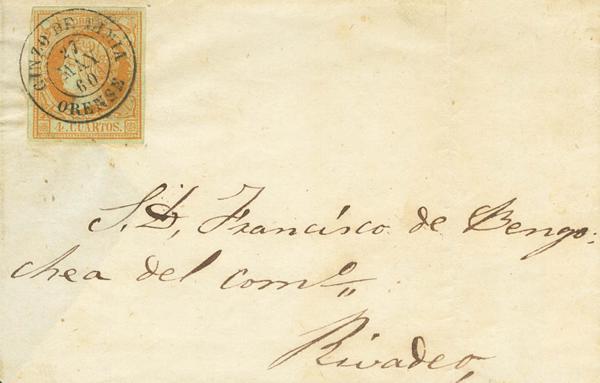 GINZO DE LIMIA
27
MAY
60
ORENSE
4. CUARTOS.
S. D., Francisco de Bengo:
chea del com.º
Rivadeo,